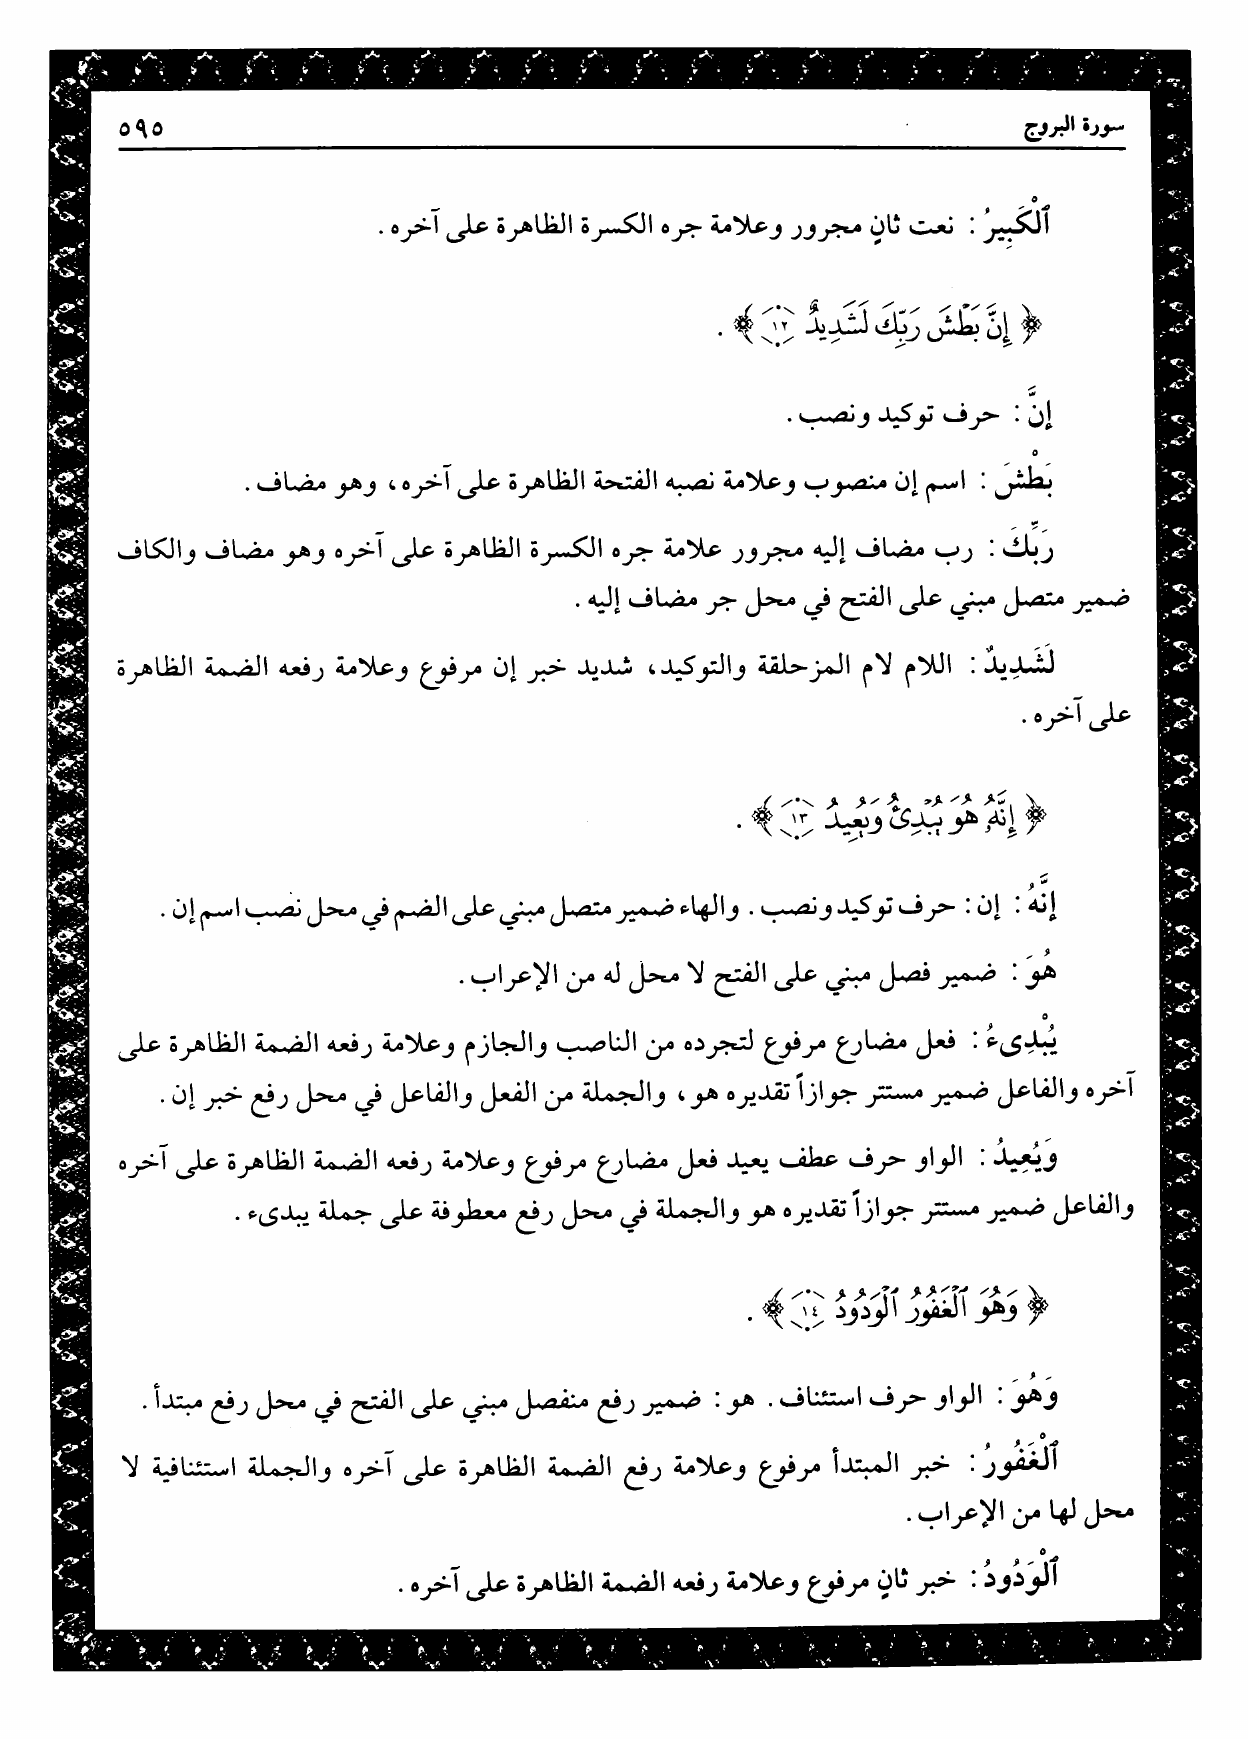 سورة البروج ٥٩٥
ٱلْكَبِيرُ : نعت ثانٍ مجرور وعلامة جره الكسرة الظاهرة على آخره .
﴿ إِنَّ بَطْشَ رَبِّكَ لَشَدِيدٌ ١٢ ﴾ .
إنَّ : حرف توكيد ونصب .
بَطْشَ : اسم إن منصوب وعلامة نصبه الفتحة الظاهرة على آخره ، وهو مضاف .
رَبِّكَ : رب مضاف إليه مجرور علامة جره الكسرة الظاهرة على آخره وهو مضاف والكاف
ضمير متصل مبني على الفتح في محل جر مضاف إليه .
لَشَدِيدٌ : اللام لام المزحلقة والتوكيد ، شديد خبر إن مرفوع وعلامة رفعه الضمة الظاهرة
على آخره .
﴿ إِنَّهُۥ هُوَ يُبْدِئُ وَيُعِيدُ ١٣ ﴾ .
إنَّهُ : إن : حرف توكيد ونصب . والهاء ضمير متصل مبني على الضم في محل نصب اسم إن .
هُوَ : ضمير فصل مبني على الفتح لا محل له من الإعراب .
يُبْدِىءُ : فعل مضارع مرفوع لتجرده من الناصب والجازم وعلامة رفعه الضمة الظاهرة على
آخره والفاعل ضمير مستتر جوازاً تقديره هو ، والجملة من الفعل والفاعل في محل رفع خبر إن .
وَيُعِيدُ : الواو حرف عطف يعيد فعل مضارع مرفوع وعلامة رفعه الضمة الظاهرة على آخره
والفاعل ضمير مستتر جوازاً تقديره هو والجملة في محل رفع معطوفة على جملة يبدىء .
﴿ وَهُوَ ٱلْغَفُورُ ٱلْوَدُودُ ١٤ ﴾ .
وَهُوَ : الواو حرف استئناف . هو : ضمير رفع منفصل مبني على الفتح في محل رفع مبتدأ .
ٱلْغَفُورُ : خبر المبتدأ مرفوع وعلامة رفع الضمة الظاهرة على آخره والجملة استئنافية لا
محل لها من الإعراب .
ٱلْوَدُودُ : خبر ثانٍ مرفوع وعلامة رفعه الضمة الظاهرة على آخره .